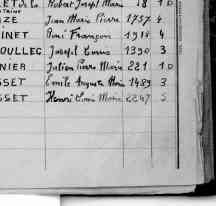 ET de la Robert Joseph Marie 18 1 D
ZE Jean Marie Pierre 1757 4
INET René François 1914 4
OULLEC Joseph Louis 1390 3
NIER Julien Pierre Marie 221 1 D
SSET Emile Auguste Marie 1489 3
SSET Henri Louis Marie 2247 5